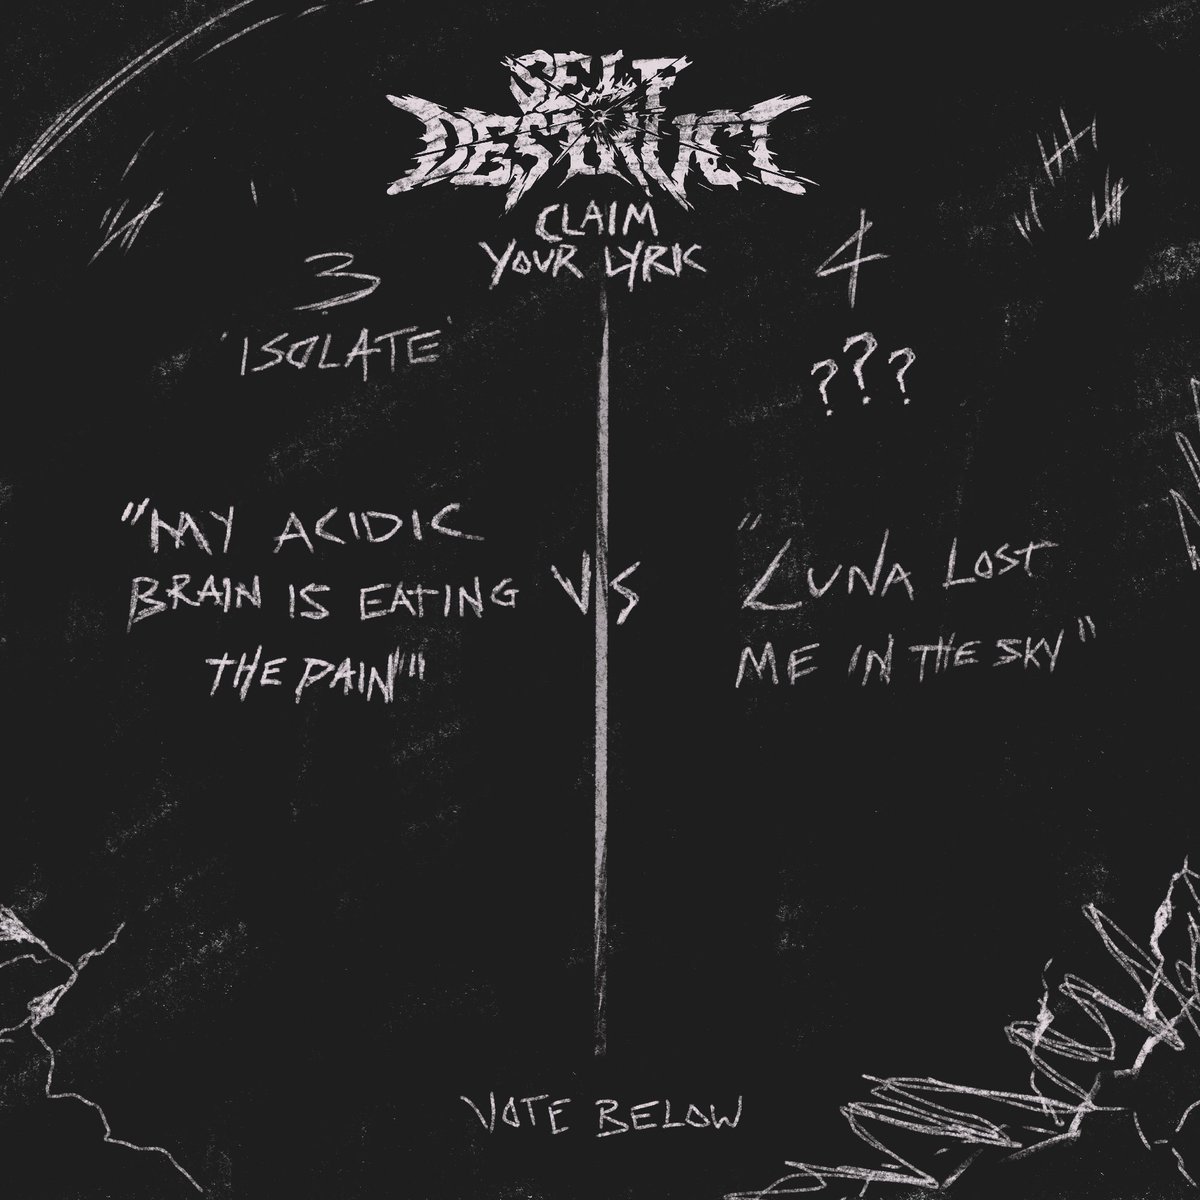 SELF
DESTRUCT
CLAIM
YOUR LYRIC
3
'ISOLATE'
"MY ACIDIC
BRAIN IS EATING
THE PAIN"
VS
4
???
"LUNA LOST
ME IN THE SKY"
VOTE BELOW